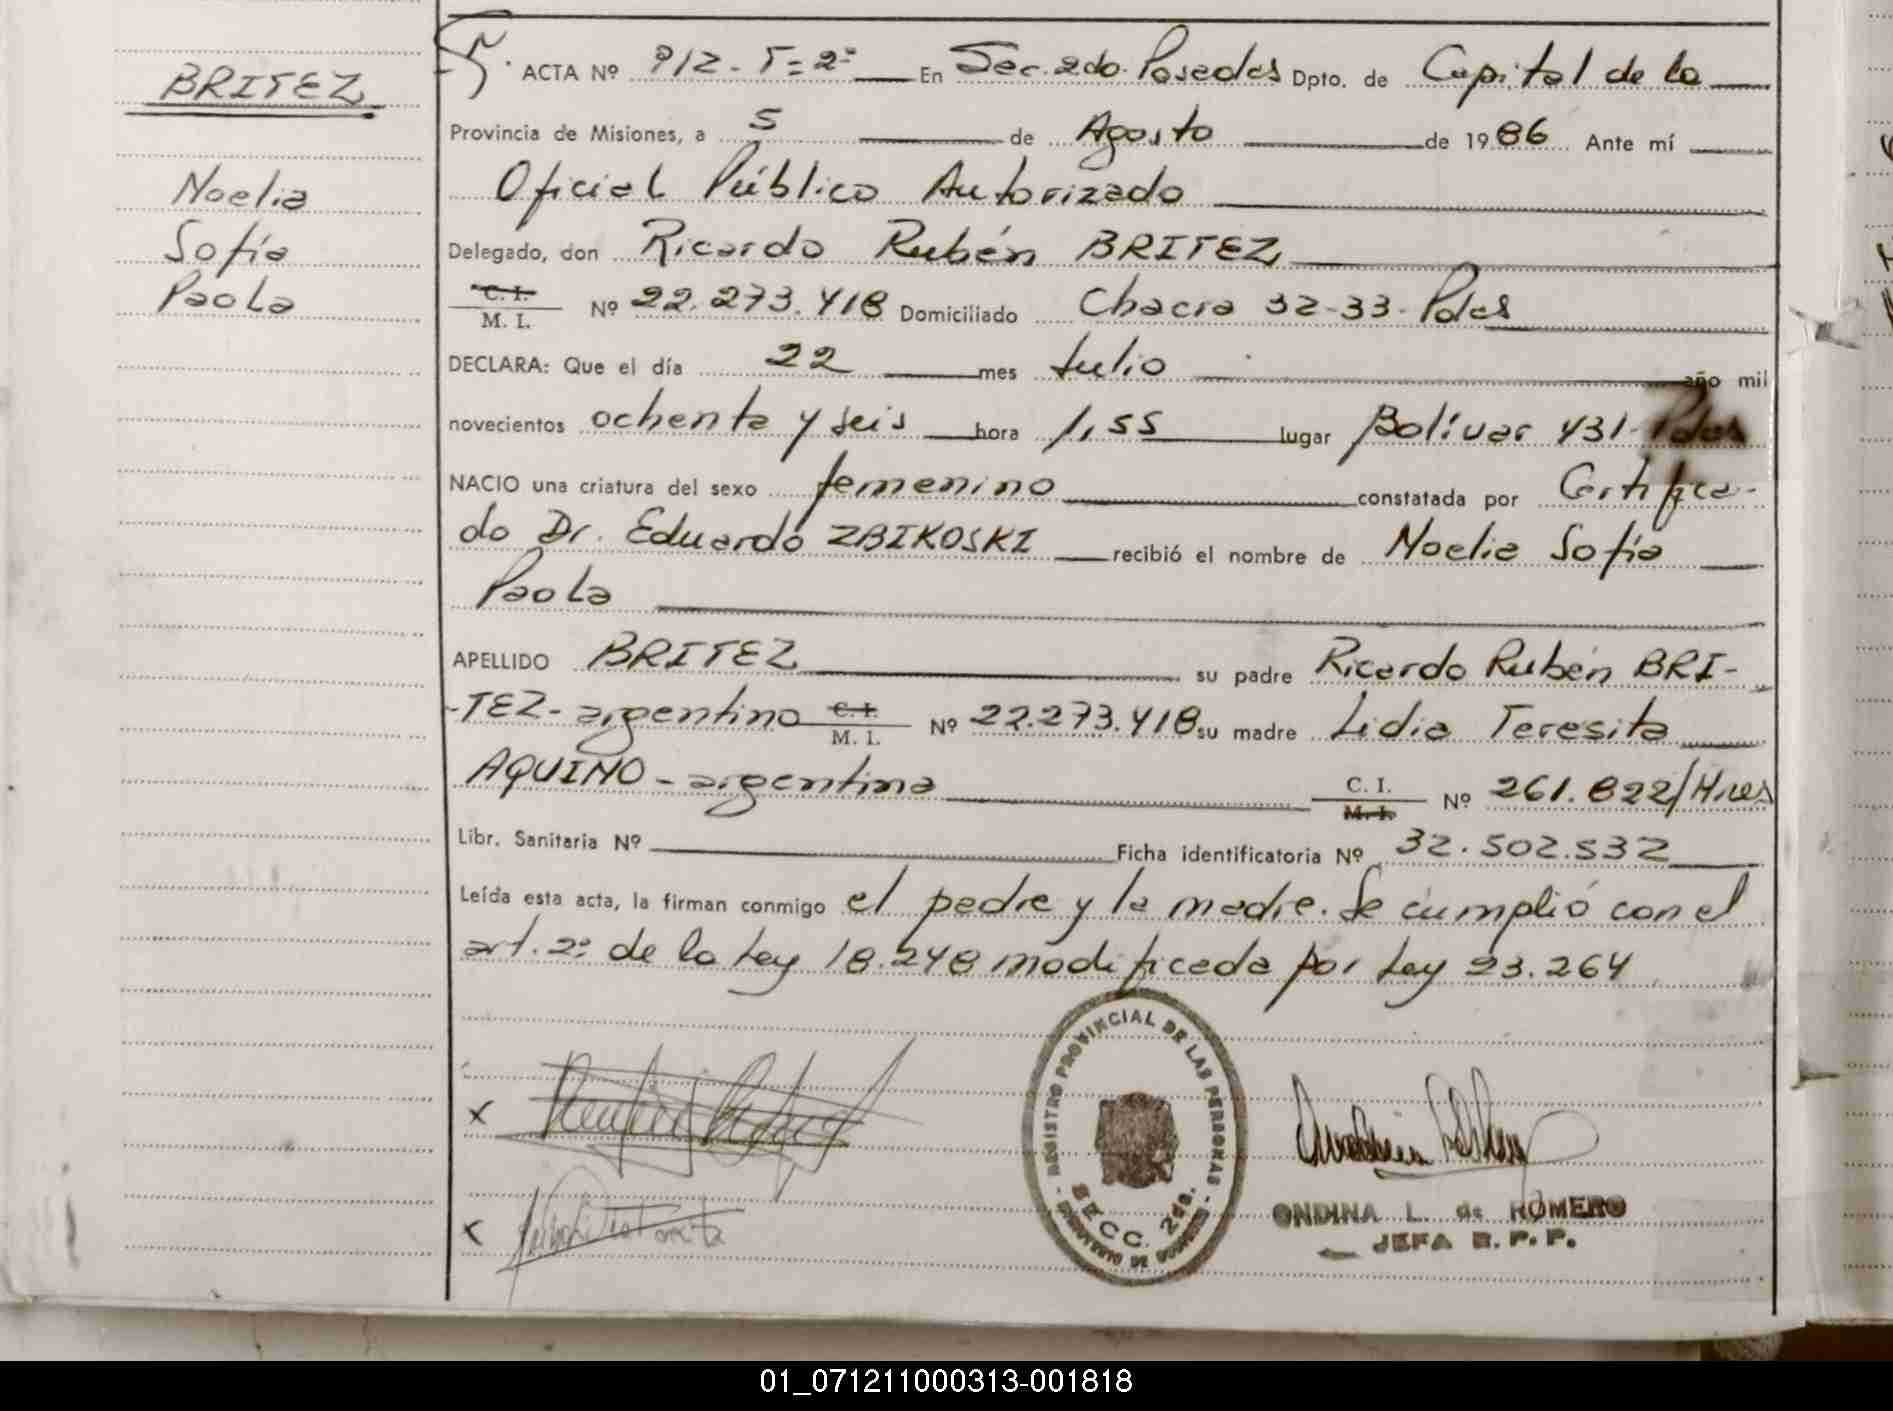 BRITEZ
Noelia
Sofía
Paola
ACTA Nº 912 - T=2º En Sec. 2do. Posadas Dpto. de Capital de la
Provincia de Misiones, a 5 de Agosto de 1986 Ante mí
Oficial Público Autorizado
Delegado, don Ricardo Rubén BRITEZ
C. I.
M. I. Nº 22.273.418 Domiciliado Chacra 32-33- Pdas
DECLARA: Que el día 22 mes Julio año mil
novecientos ochenta y seis hora 1,55 lugar Bolívar 431- Pdas
NACIO una criatura del sexo femenino constatada por Certifica-
do Dr. Eduardo ZBIKOSKI recibió el nombre de Noelia Sofía
Paola
APELLIDO BRITEZ su padre Ricardo Rubén BRI-
-TEZ- argentino C. I. M. I. Nº 22.273.418 su madre Lidia Teresita
AQUINO - argentina C. I. M. I. Nº 261.822/Mnes
Libr. Sanitaria Nº Ficha identificatoria Nº 32.502.532
Leída esta acta, la firman conmigo el padre y la madre. Se cumplió con el
art. 2º de la Ley 18.248 modificada por Ley 23.264
REGISTRO PROVINCIAL DE LAS PERSONAS
SECC. 2da.
ONDINA L. de ROMERO
JEFA R. P. P.
01_071211000313-001818